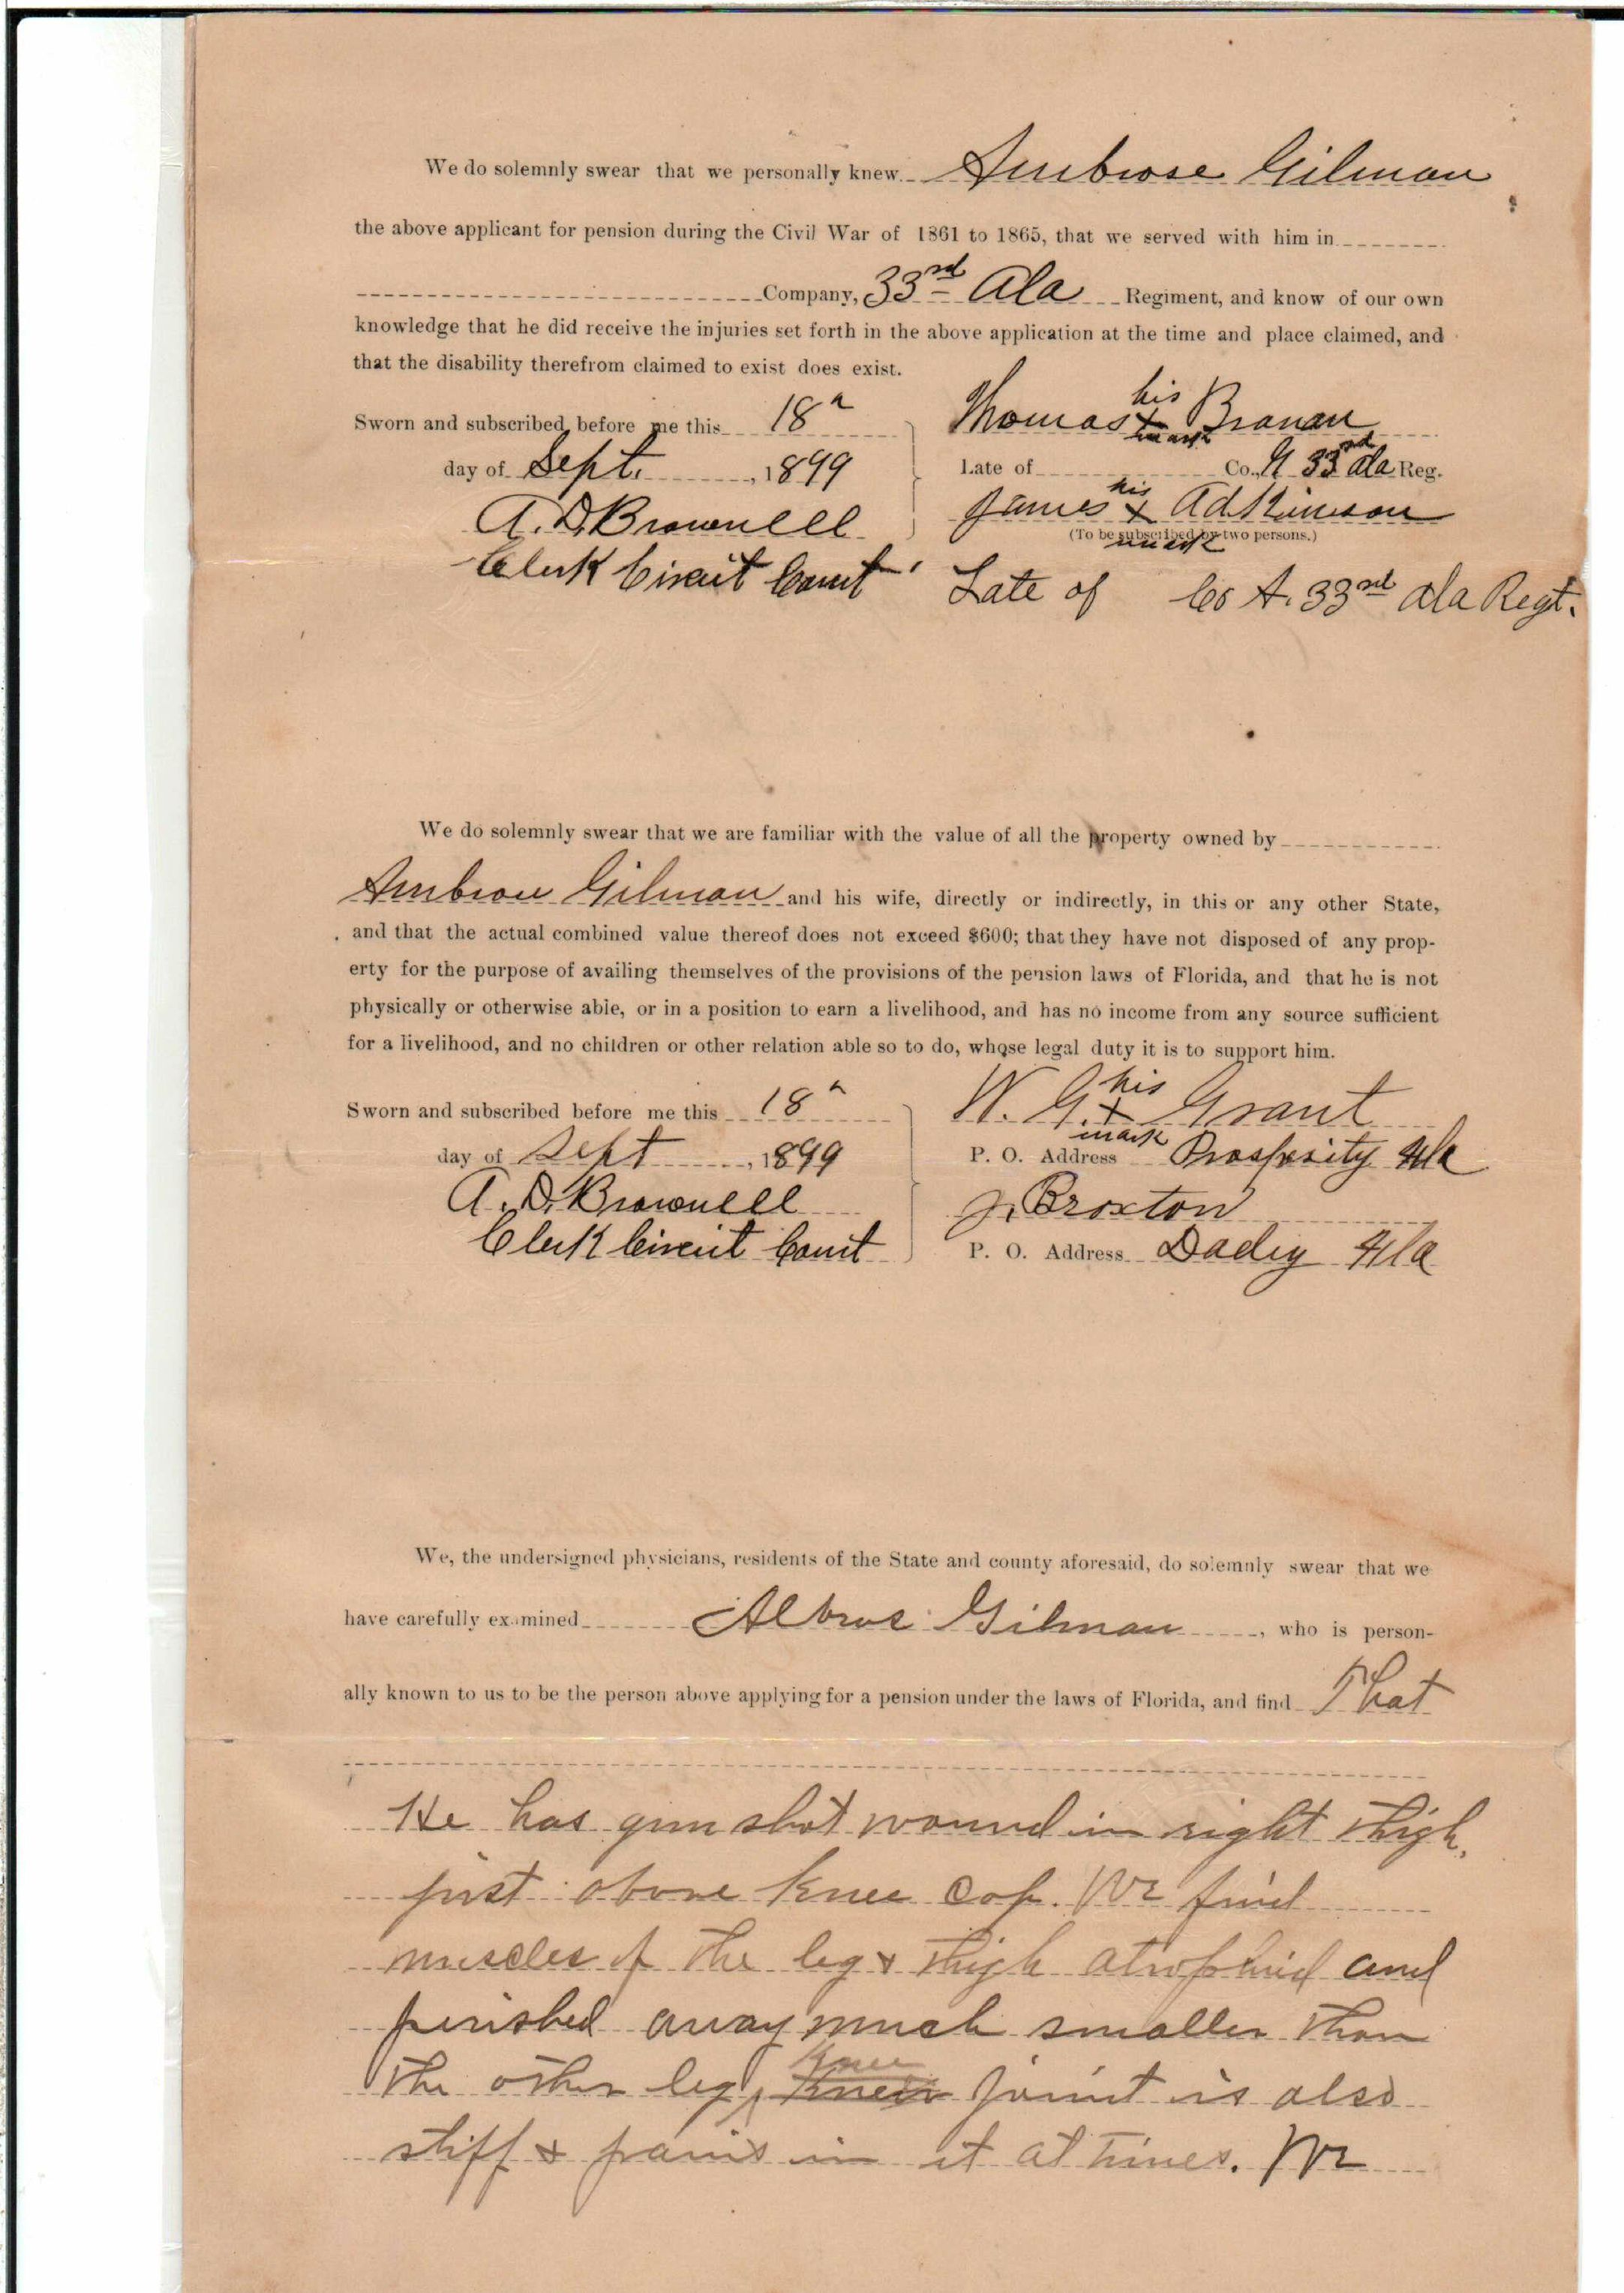 We do solemnly swear that we personally knew Ambrose Gilman
the above applicant for pension during the Civil War of 1861 to 1865, that we served with him in
Company, 33rd Ala Regiment, and know of our own
knowledge that he did receive the injuries set forth in the above application at the time and place claimed, and
that the disability therefrom claimed to exist does exist.
Sworn and subscribed before me this 18"
day of Sept. , 1899
A. D. Brownell
Clerk Circuit Court
Thomas his x mark Branan
Late of Co., 33rd Ala Reg.
James his x mark Adkinson
(To be subscribed by two persons.)
Late of Co A. 33rd Ala Regt.
We do solemnly swear that we are familiar with the value of all the property owned by
Ambrose Gilman and his wife, directly or indirectly, in this or any other State,
and that the actual combined value thereof does not exceed $600; that they have not disposed of any prop-
erty for the purpose of availing themselves of the provisions of the pension laws of Florida, and that he is not
physically or otherwise able, or in a position to earn a livelihood, and has no income from any source sufficient
for a livelihood, and no children or other relation able so to do, whose legal duty it is to support him.
Sworn and subscribed before me this 18"
day of Sept , 1899
A. D. Brownell
Clerk Circuit Court
W. G. his x mark Grant
P. O. Address Prosperity Fla
J. Broxton
P. O. Address Dady Fla
We, the undersigned physicians, residents of the State and county aforesaid, do solemnly swear that we
have carefully examined Albros Gilman , who is person-
ally known to us to be the person above applying for a pension under the laws of Florida, and find That
He has gun shot wound in right thigh,
just above knee cap. We find
muscles of the leg & thigh atrophied and
perished away much smaller than
the other leg, knee joint is also
stiff & pains in it at times. We